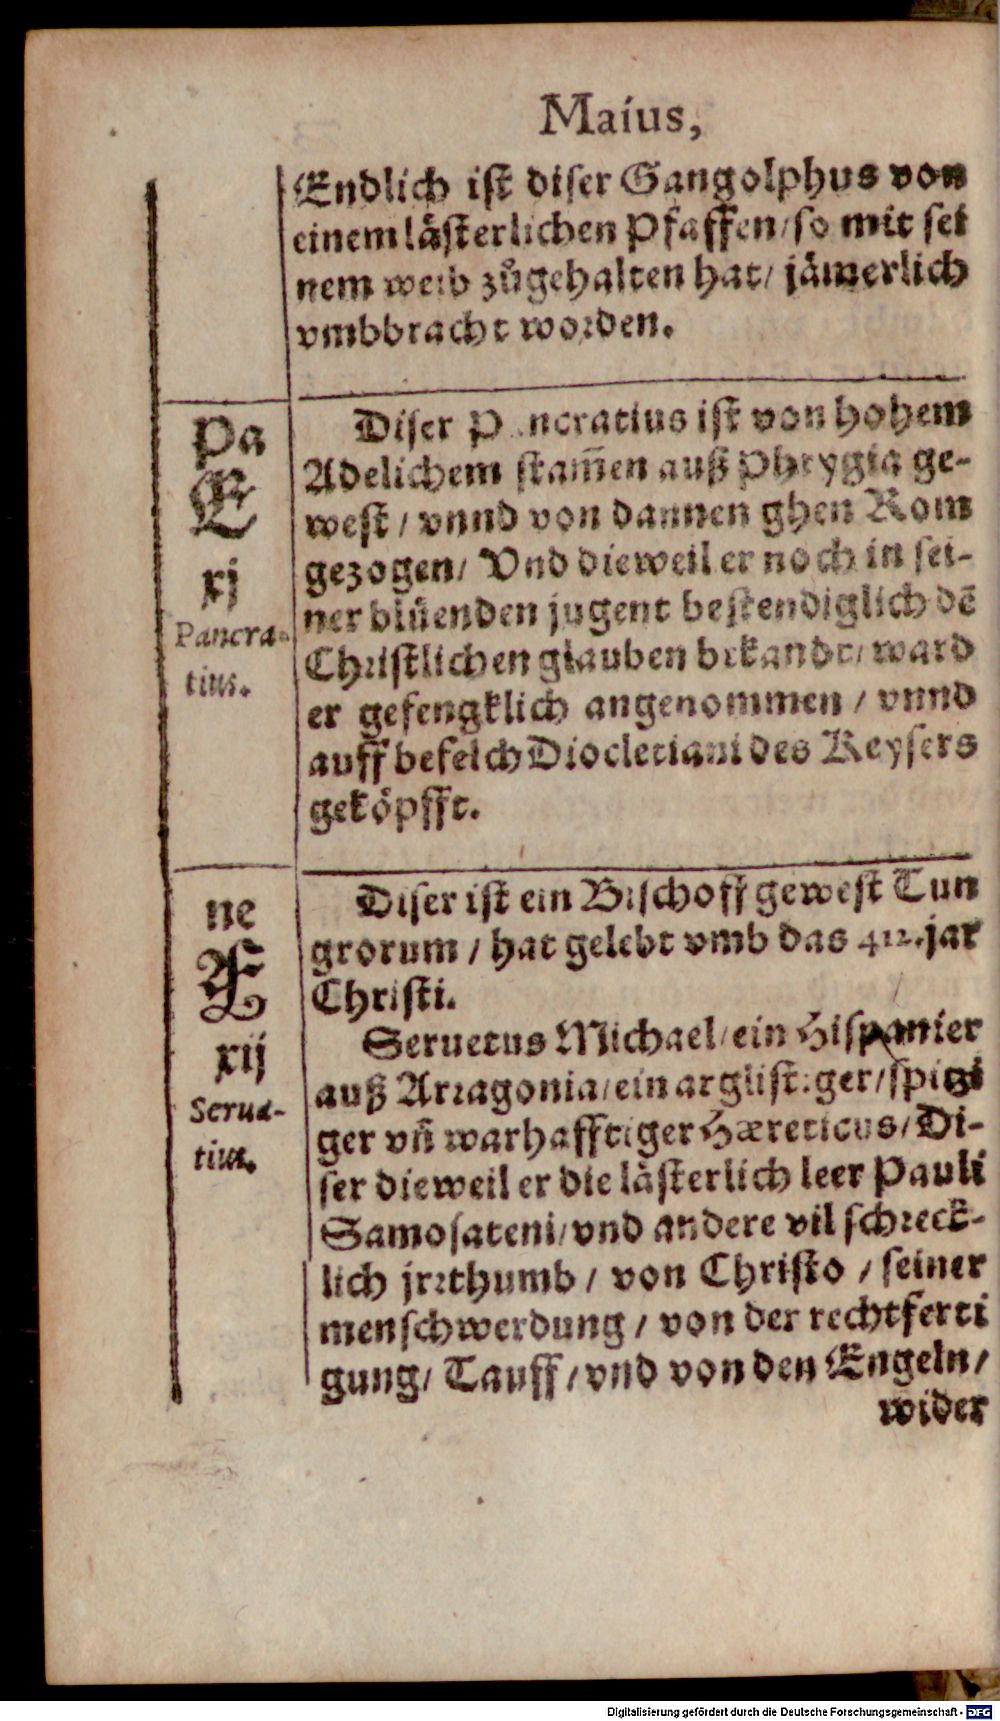 Maius,
Endlich ist diser Gangolphus von
einem lästerlichen Pfaffen/ so mit sei
nem weib zůgehalten hat/ jämerlich
vmbbracht worden.
Pa
E
xj
Pancra-
tius.
Diser P ncratius ist von hohem
Adelichem stam̄en auß Phrygia ge-
west / vnnd von dannen ghen Rom
gezogen/ Vnd dieweil er noch in sei-
ner blüenden jugent bestendiglich dē
Christlichen glauben bekandt/ ward
er gefengklich angenommen / vnnd
auff befelch Diocletiani des Keysers
geköpfft.
ne
F
xij
Serua-
tius.
Diser ist ein Bischoff gewest Tun
grorum / hat gelebt vmb das 412. jar
Christi.
Seruetus Michael/ ein Hispanier
auß Arragonia/ ein arglistiger/ spitzi
ger vn̄ warhafftiger Hæreticus/ Di-
ser dieweil er die lästerlich leer Pauli
Samosateni/ vnd andere vil schreck-
lich jrrthumb / von Christo / seiner
menschwerdung / von der rechtferti
gung/ Tauff / vnd von den Engeln/
wider
Digitalisierung gefördert durch die Deutsche Forschungsgemeinschaft - DFG